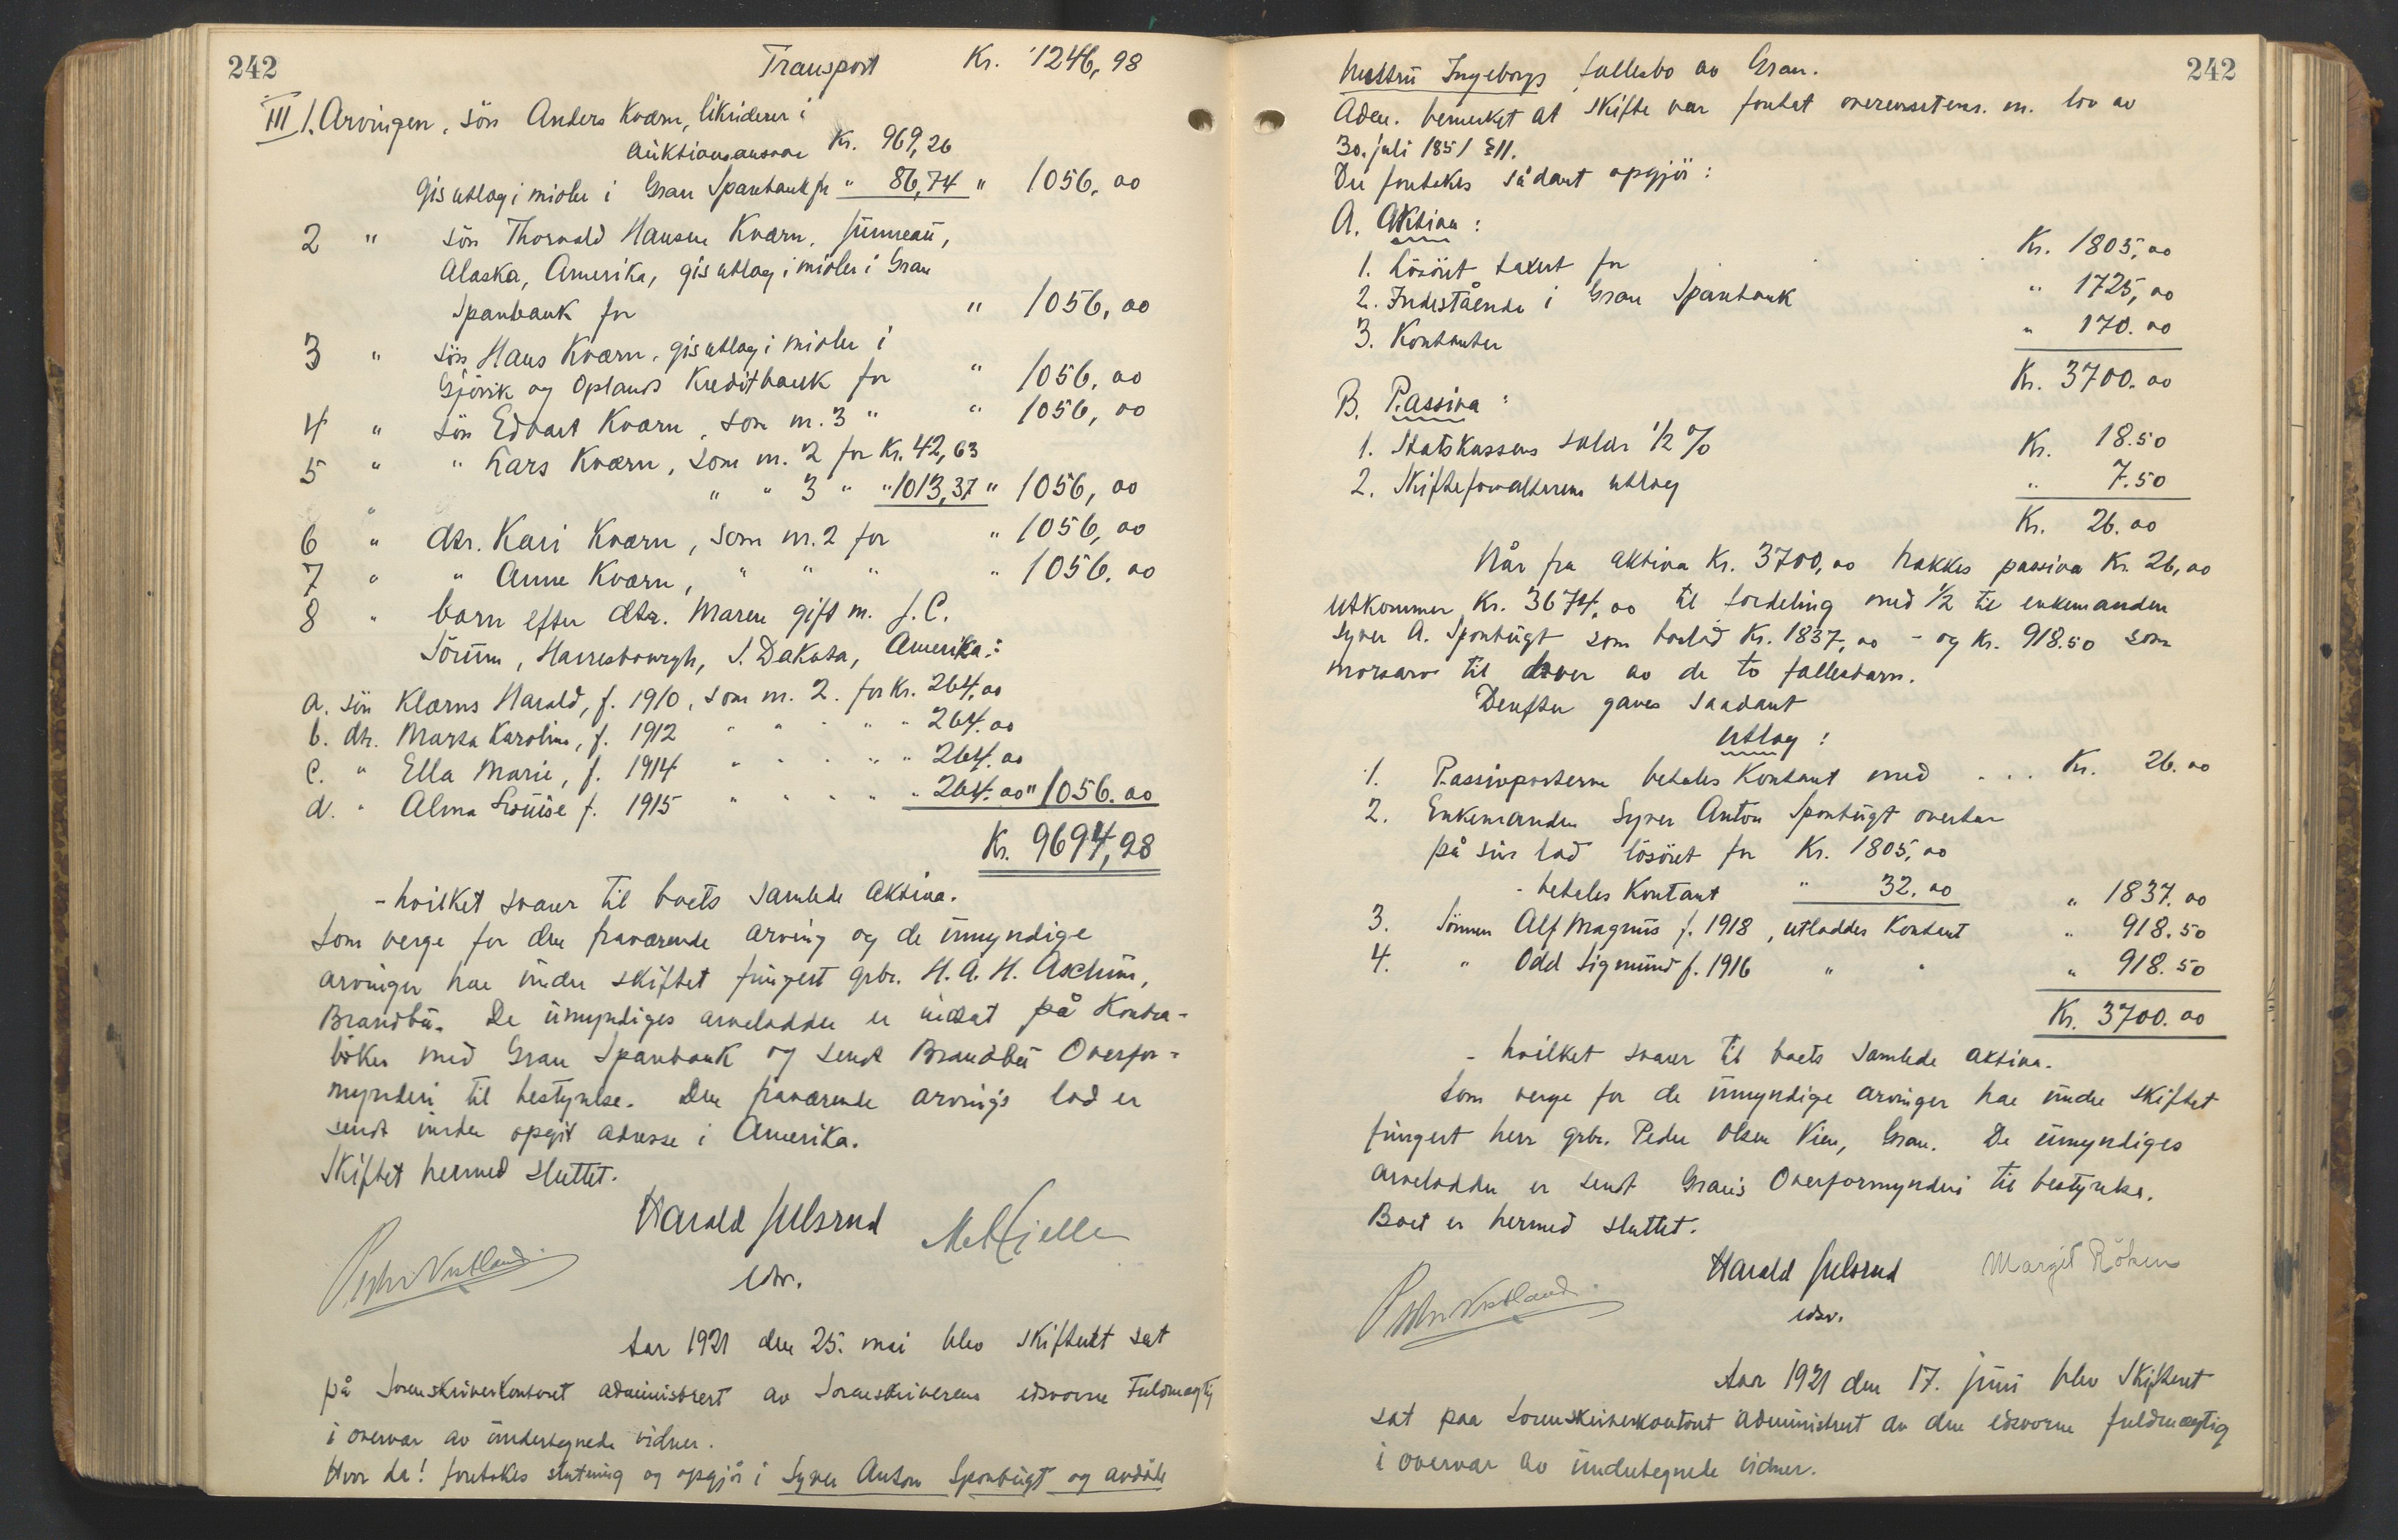 242
Transport Kr. 1246,98
III 1. Arvingen, sön Anders Kværn, likviderer i
auktionsansvar Kr. 969,26
gis utlag i midler i Gran Sparebank fr " 86,74 " 1056,00
2 " sön Thorvald Hansen Kværn, Juneau,
Alaska, Amerika, gis utlag i midler i Gran
Sparebank for " 1056,00
3 " sön Hans Kværn, gis utlag i midler i
Gjövik og Oplands Kreditbank for " 1056,00
4 " sön Edvart Kværn, som nr. 3 " " 1056,00
5 " " Lars Kværn, som nr. 2 for Kr. 42,63
" " 3 " " 1013,37 " 1056,00
6 " dtr. Kari Kværn, som nr. 2 for " 1056,00
7 " " Anne Kværn, " " " " 1056.00
8 " barn efter dtr. Maren gift m. J. C.
Sörum, Harresbourgh, S. Dakota, Amerika:
a. sön Klærns Harald, f. 1910, som nr. 2. for Kr. 264,00
b. dtr. Marta Karoline, f. 1912 " " " " " 264.00
c. " Ella Marie, f. 1914 " " " " " 264.00
d. " Alma Louise f. 1915 " " " " " 264.00 " 1056.00
Kr. 9694,98
- hvilket svarer til boets samlede aktiva.
Som verge for den fraværende arving og de umyndige
arvinger har under skiftet fungert grbr. H. A. H. Aschim,
Brandbu. De umyndiges arvelodder er indsat på Kontra-
böker med Gran Sparebank og sendt Brandbu Overfor-
mynderi til bestyrelse. Den fraværende arvings lod er
sendt under opgit adresse i Amerika.
Skiftet hermed sluttet.
Harald Julsrud
edsv.
Aar 1921 den 25. mai blev skifterett sat
på Sorenskriverkontoret administrert av Sorenskriverens edsvorne Fuldmægtig
i overvær av undertegnede vidner.
Hvor da! foretokes slutning og opgjör i Syver Anton Sponbugt og avdöde
242
hustru Ingeborgs fællesbo av Gran.
Adm. bemerket at skifte var foretat overensstem. m. lov av
30. juli 1851 §11.
Der foretokes sådant opgjör:
A. Aktiva:
1. Lösöret taxert for Kr. 1805,00
2. Indestående i Gran Sparebank " 1725,00
3. Kontanter " 170.00
Kr. 3700.00
B. Passiva:
1. Statskassens salær 1/2 % Kr. 18.50
2. Skifteforvalterens utlæg " 7.50
Kr. 26.00
Når fra aktiva Kr. 3700,00 trækkes passiva Kr. 26,00
utkommer Kr. 3674,00 til fordeling med 1/2 til enkemanden
Syver A. Sponbugt som boslod Kr. 1837,00 - og Kr. 918.50 som
morsarv til hver av de to fællesbarn.
Derefter gaves saadant
Utlæg:
1. Passivposterne betales kontant med . . . Kr. 26.00
2. Enkemanden Syver Anton Sponbugt overtar
på sin lod lösöret for Kr. 1805,00
- betales kontant " 32.00 " 1837.00
3. Sönnen Alf Magnus f. 1918, utloddes kontant " 918.50
4. " Odd Sigmund f. 1916 " " " 918.50
Kr. 3700.00
- hvilket svarer til boets samlede aktiva.
Som verge for de umyndige arvinger har under skiftet
fungert herr grbr. Peder Olsen Vien, Gran. De umyndiges
arvelodder er sendt Grans Overformynderi til bestyrelse.
Boet er hermed sluttet.
Harald Julsrud Margit Röken
edsv.
Aar 1921 den 17. juni blev Skifterett
sat paa Sorenskriverkontoret administrert av den edsvorne fuldmægtig
i overvær av undertegnede vidner.